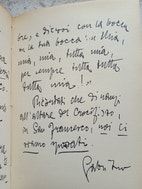 re, e dirvi con la bocca
in la tua bocca: « Mia,
mia, mia, tutta mia,
per sempre tutta tutta
tutta mia! ».
Ricordati che dinanzi
all'altare del Crocifisso,
in San Francesco, noi ci
sposati